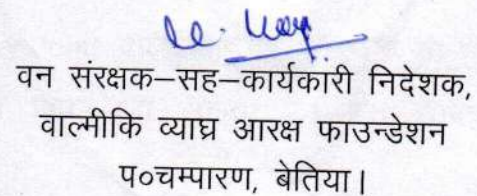 वन संरक्षक–सह–कार्यकारी निदेशक,
वाल्मीकि व्याघ्र आरक्ष फाउन्डेशन
प०चम्पारण, बेतिया।